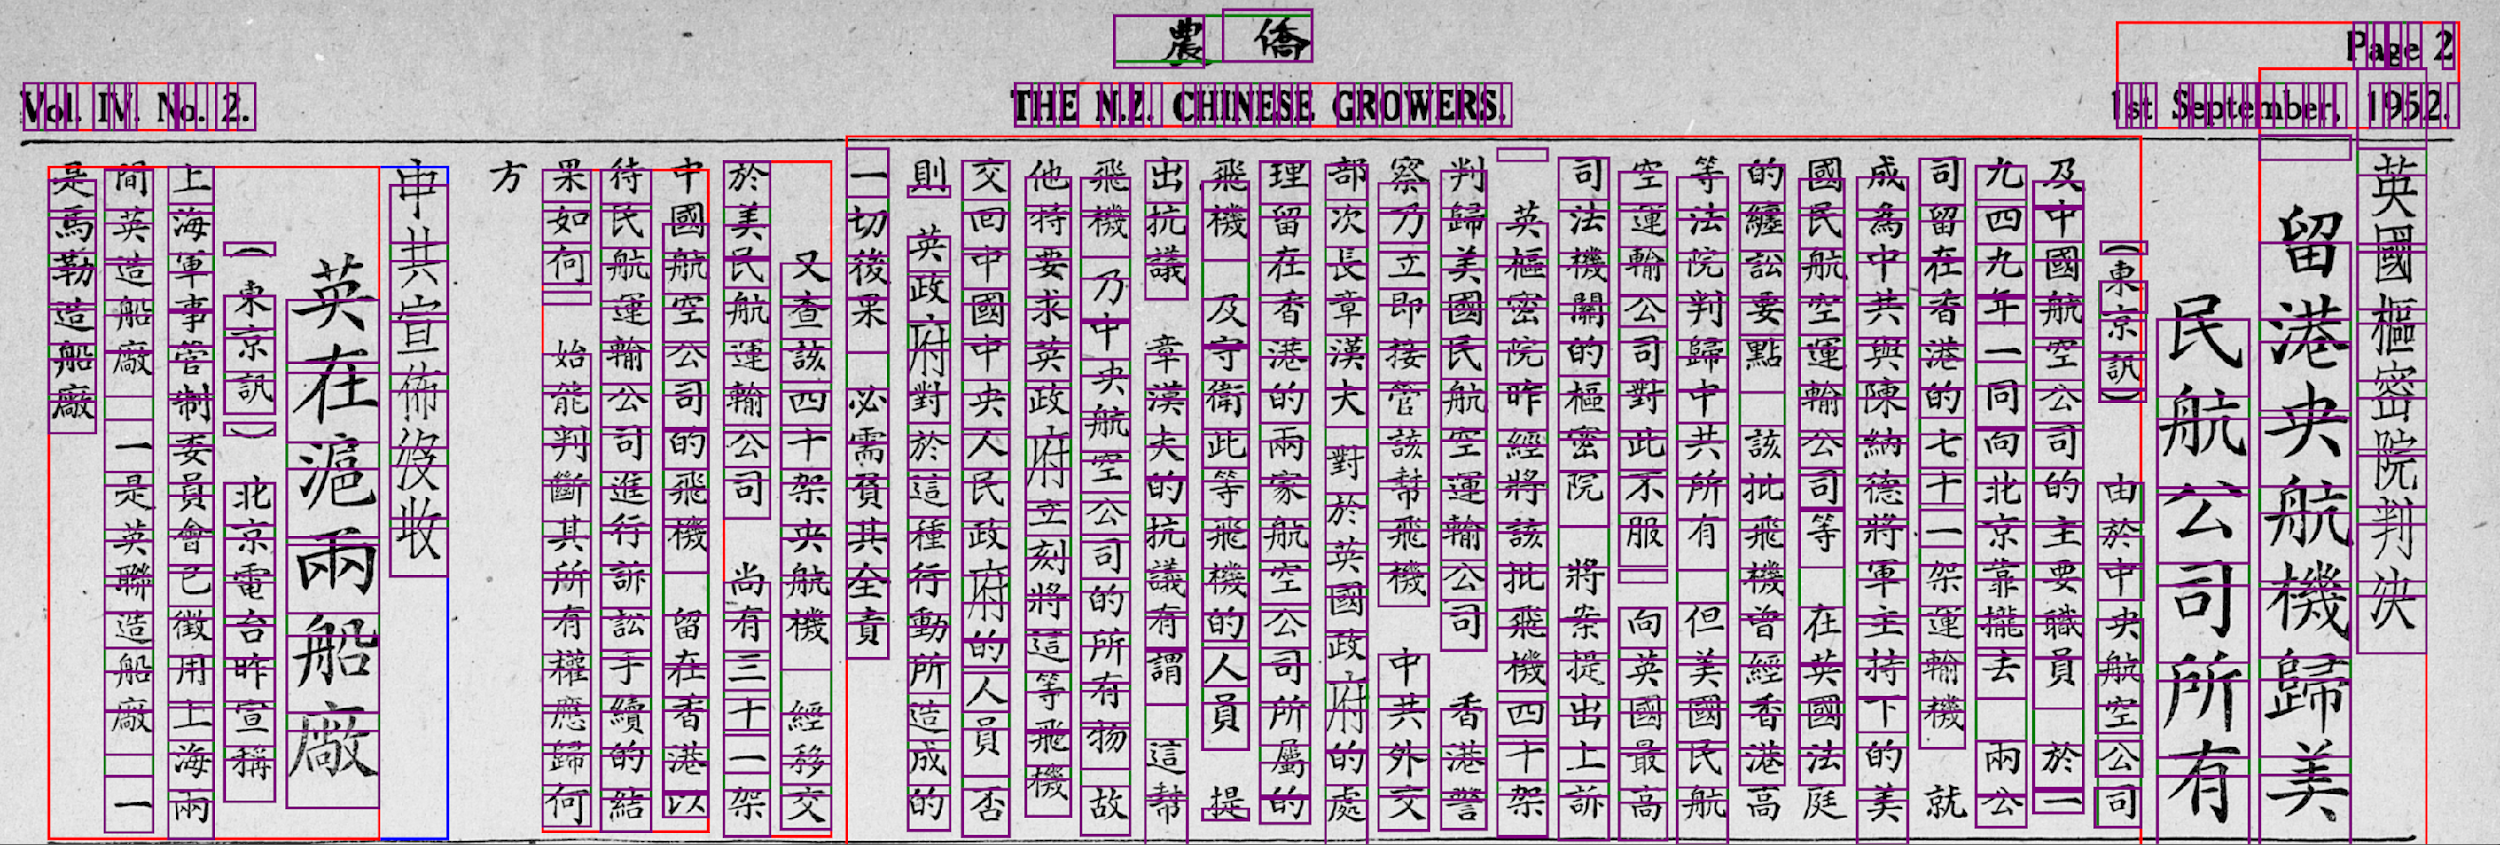 農 僑
Page 2
Vol. IV. No. 2.
THE N.Z. CHINESE GROWERS.
1st September, 1952.
英國樞密院判决
留港央航機歸美
民航公司所有
(東京訊) 由於中央航空公司
及中國航空公司的主要職員 於一
九四九年一同向北京靠攏去 兩公
司留在香港的七十一架運輸機 就
成為中共與陳納德將軍主持下的美
國民航空運輸公司等 在英國法庭
的纏訟要點 該批飛機曾經香港高
等法院判歸中共所有 但美國民航
空運輸公司對此不服 向英國最高
司法機關的樞密院 將案提出上訴
英樞密院昨經將該批飛機四十架
判歸美國民航空運輸公司 香港警
察乃立即接管該幇飛機 中共外交
部次長章漢夫 對於英國政府的處
理留在香港的兩家航空公司所屬的
飛機 及守衛此等飛機的人員 提
出抗議 章漢夫的抗議有謂 這幇
飛機 乃中央航空公司的所有物 故
他特要求英政府立刻將這等飛機
交回中國中央人民政府的人員 否
則 英政府對於這種行動所造成的
一切後果 必需負其全責
又查該四十架央航機 經移交
於美民航運輸公司 尚有三十一架
中國航空公司的飛機 留在香港以
待民航運輸公司進行訴訟手續的結
果如何 始能判斷其所有權應歸何
方
中共宣佈沒收
英在滬兩船廠
(東京訊) 北京電台昨宣稱
上海軍事管制委員會已徵用上海兩
間英造船廠 一是英聯造船廠 一
是馬勒造船廠